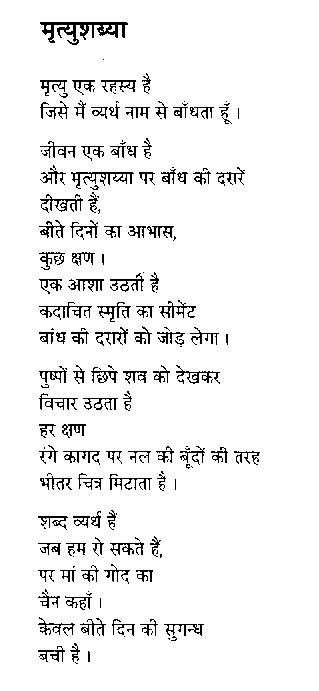 मृत्युशय्या
मृत्यु एक रहस्य है
जिसे मैं व्यर्थ नाम से बाँधता हूँ ।
जीवन एक बाँध है
और मृत्युशय्या पर बाँध की दरारें
दीखती हैं,
बीते दिनों का आभास,
कुछ क्षण ।
एक आशा उठती है
कदाचित स्मृति का सीमेंट
बांध की दरारों को जोड़ लेगा ।
पुष्पों से छिपे शव को देखकर
विचार उठता है
हर क्षण
रंगे कागद पर नल की बूँदों की तरह
भीतर चित्र मिटाता है ।
शब्द व्यर्थ हैं
जब हम रो सकते हैं,
पर मां की गोद का
चैन कहाँ ।
केवल बीते दिन की सुगन्ध
बची है ।